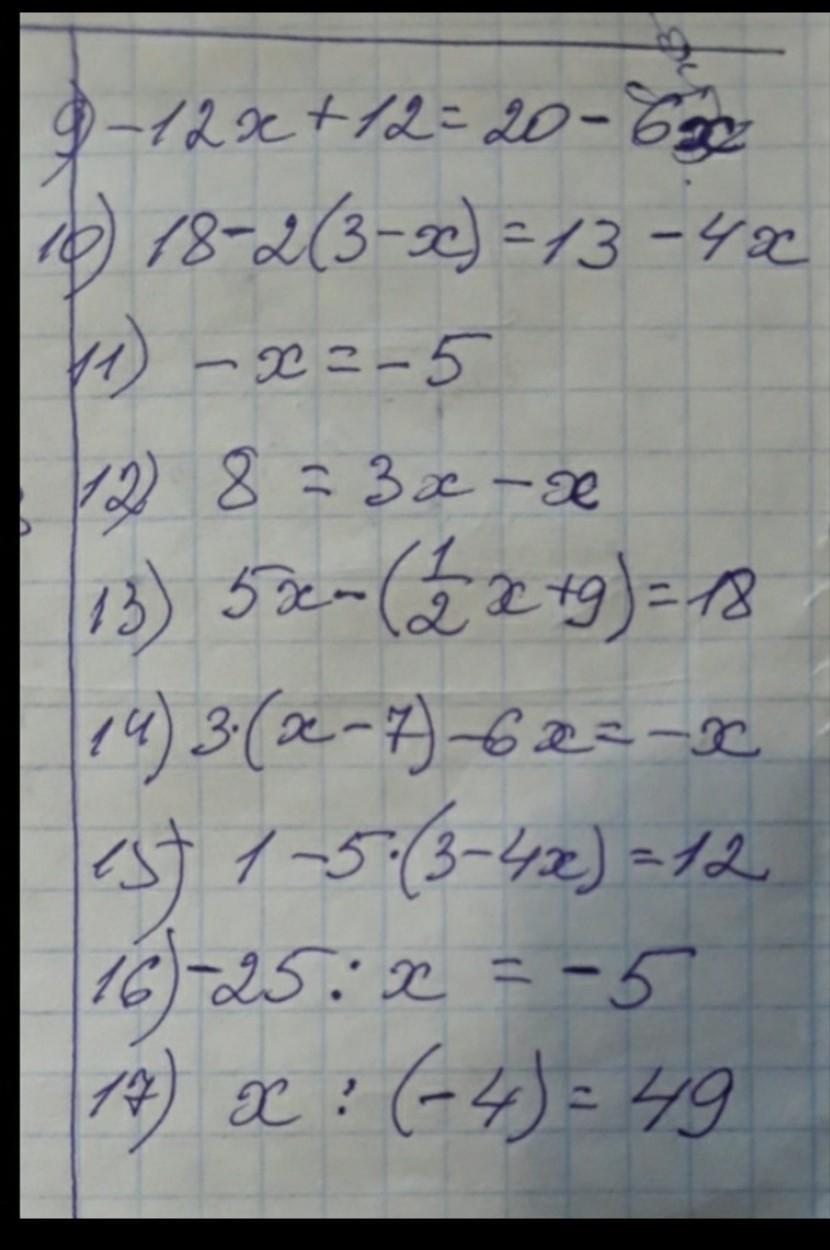 9) -12x+12=20-6x
10) 18-2(3-x)=13-4x
11) -x=-5
12) 8=3x-x
13) 5x-(1/2x+9)=18
14) 3·(x-7)-6x=-x
15) 1-5·(3-4x)=12
16) -25:x=-5
17) x:(-4)=49